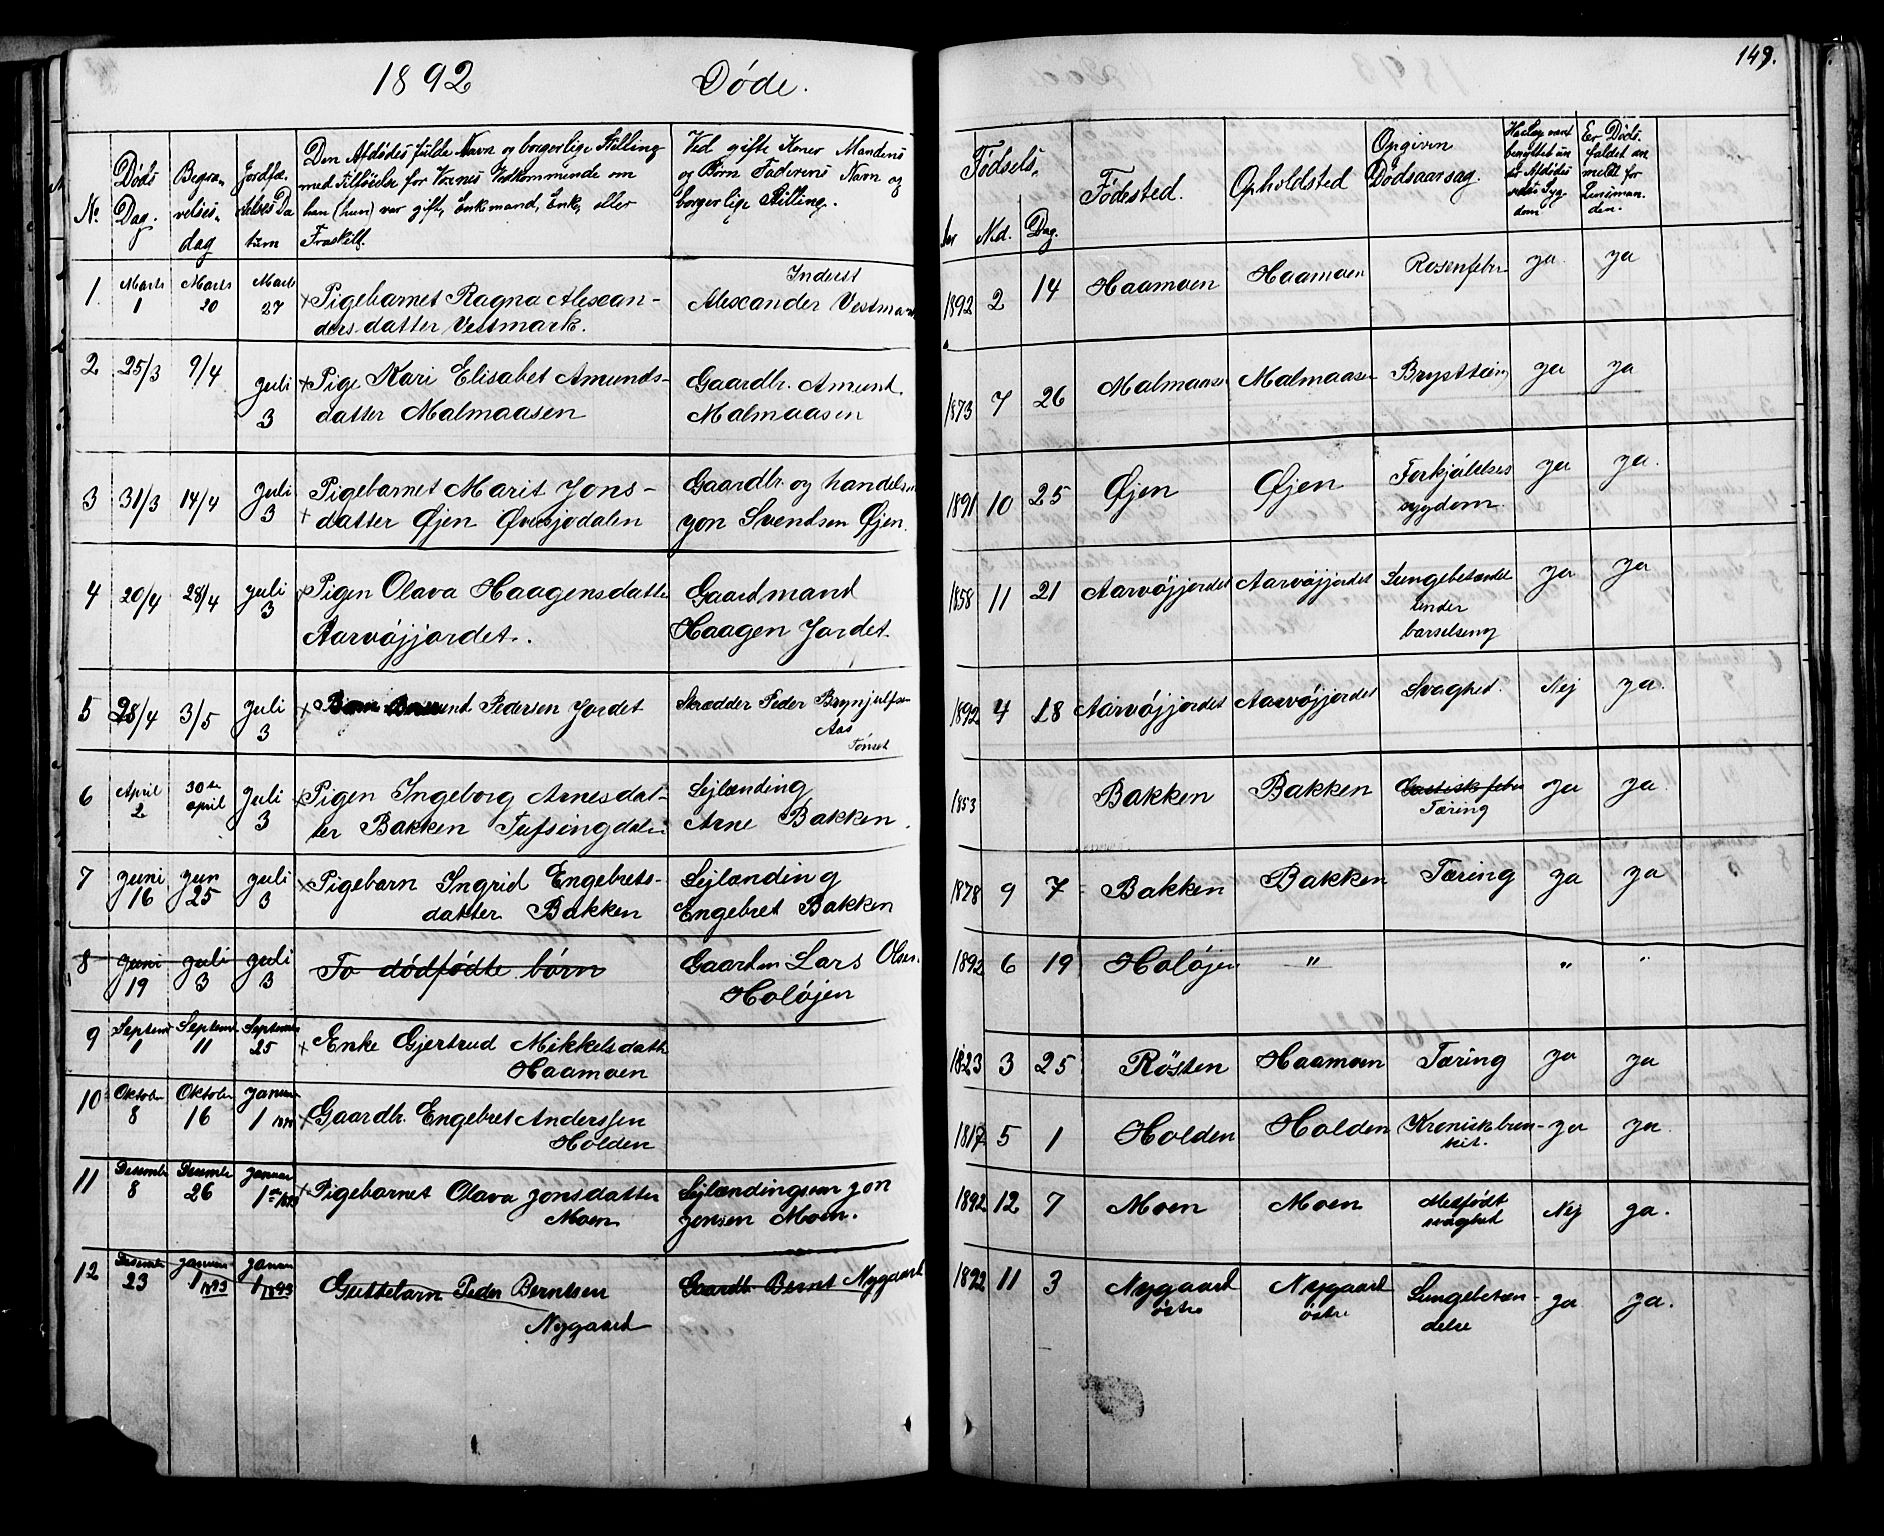 1892 Døde.
149.
No.
Døds Dag.
Begravelsesdag
Jordfæstelses Datum
Den Afdødes fulde Navn og borgerlige Stilling
med Tilføielse for Voxnes Vedkommende om
han (hun) var gift, Enkemand, Enke, eller
Fraskilt.
Ved gifte Koner Mandens
og Børn Faderens Navn og
borgerlige Stilling.
Fødsels.
Aar Md. Dag.
Fødested.
Opholdsted
Opgiven
Dødsaarsag.
Er Døds-
faldet an
meldt for
Lensman-
den.
1 Marts 1 Marts 20 Marts 27 Pigebarnet Ragna Alexan-
ders datter Vestmark.
Inderst
Alexander Vestmark
1892 2 14 Haamoen Haamoen Rosenfeber ja ja
2 25/3 9/4 Juli 3 Pige Kari Elisabet Amunds-
datter Malmaasen
Gaardbr. Amund
Malmaasen
1873 7 26 Malmaasen Malmaasen Brysttæring ja ja
3 31/3 14/4 Juli 3 Pigebarnet Marit Jons-
datter Øjen Øversjødalen
Gaardbr og handelsm
Jon Svendsen Øjen.
1891 10 25 Øjen Øjen Forkjølelses
sygdom ja ja.
4 20/4 28/4 Juli 3 Pigen Olava Haagensdatter
Aarvøjjordet.
Gaardmand
Haagen Jordet
1858 11 21 Aarvøjjordet Aarvøjjordet Lungebetændel
under
barselseng ja ja
5 28/4 3/5 Juli 3 Pedersen Jordet
Skrædder Peder Brynjulfsen
Aas
Tønset
1892 4 18 Aarvøjjordet Aarvøjjordet Svaghed. Nej ja.
6 April 2 30te april Juli 3 Pigen Ingeborg Arnesdat-
ter Bakken Tufsingdalen
Sejlænding
Arne Bakken
1853 Bakken Bakken Gastisk feber
Tæring ja ja.
7 Juni 16 Jun 25 Juli 3 Pigebarn Ingrid Engebrets-
datter Bakken
Sejlænding
Engebret Bakken
1878 9 7 Bakken Bakken Tæring ja ja
8 Juni 19 Juli 3 Juli 3 To dødfødte børn
Gaardm Lars Olsen
Holøjen
1892 6 19 Holøjen " " "
9 Septemb 1 Septemb 11 Septemb 25 Enke Gjertrud Mikkelsdatter
Haamoen
1823 3 25 Røsten Haamoen Tæring ja ja
10 Oktober 8 Oktober 16 Januar 1 1893 Gaardbr. Engebret Anderssen
Holden
1817 5 1 Holden Holden Kronisk bron-
kit. ja ja.
11 Desember 8 Desember 26 Januar 1ste 1893 Pigebarnet Olava Jonsdatter
Moen
Sejlændingsøn Jon
Jonsen Moen.
1892 12 7 Moen Moen Medfødt
svaghed Nej ja.
12 Desember 23 Januar 1 1893 Januar 1 1893 Guttebarn Peder Berntsen
Nygaard
Gaardb. Bernt Nygaard
1892 11 3 Nygaard
østre Nygaard
østre Lungebetæn-
delse ja ja.